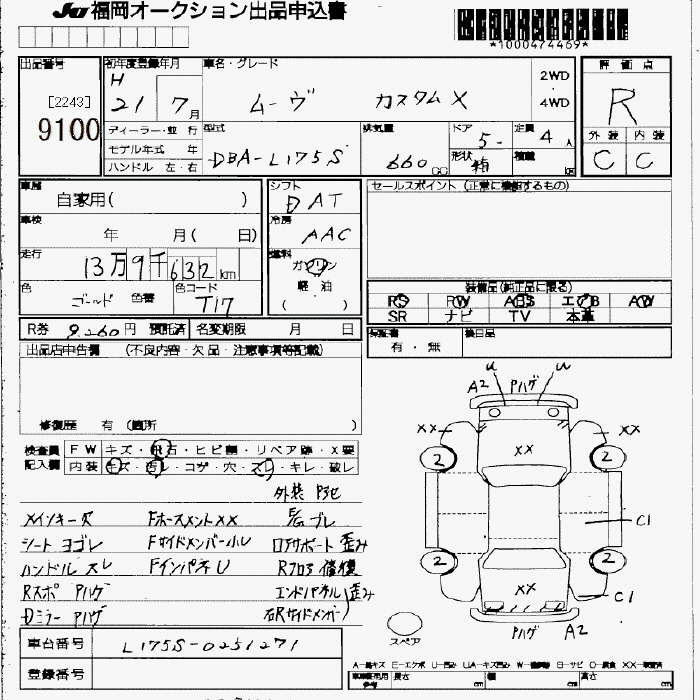 JU 福岡オークション出品申込書
*1000474469*
出品番号
[2243]
9100
初年度登録年月
H
21 7月
車名・グレード
ムーヴ カスタムX
2WD
4WD
評価点
R
外装 内装
C C
ディーラー・並行
モデル年式 年
ハンドル 左・右
型式
DBA-L175S
排気量
660 cc
ドア 5-
形状 箱
定員 4人
積載
車歴
自家用( )
車検
年 月( 日)
走行
13万9千632km
色
ゴールド 色番
色コード
T17
シフト
D AT
冷房
AAC
燃料
ガソリン
軽油
( )
セールスポイント (正常に機能するもの)
装備品(純正品に限る)
PS PW ABS エアB AW
SR ナビ TV 本革
R券 9,260円 預託済 名変期限 月 日
保証書
有・無
後日品
出品店申告欄 (不良内容・欠品・注意事項等記載)
修復歴 有(箇所 )
検査員
記入欄
FW キズ・飛石・ヒビ割・リペア跡・X要
内装 キズ・汚レ・コゲ・穴・スレ・キレ・破レ
メインキー欠
シート ヨゴレ
ハンドル スレ
Rスポ Pハゲ
Dミラー Pハゲ
FホースメントXX
Fサイドメンバー小U
FインパネU
外装
ブレ
ロアサポート 歪み
Rフロア 修復
エンドパネル 歪み
右Rサイドメンバー
A2 Pハゲ
U U
XX XX
XX
2 2
C1
2 2
XX
C1
Pハゲ A2
スペア
車台番号 L175S-0251271
登録番号
長さ cm 幅 cm 高さ cm